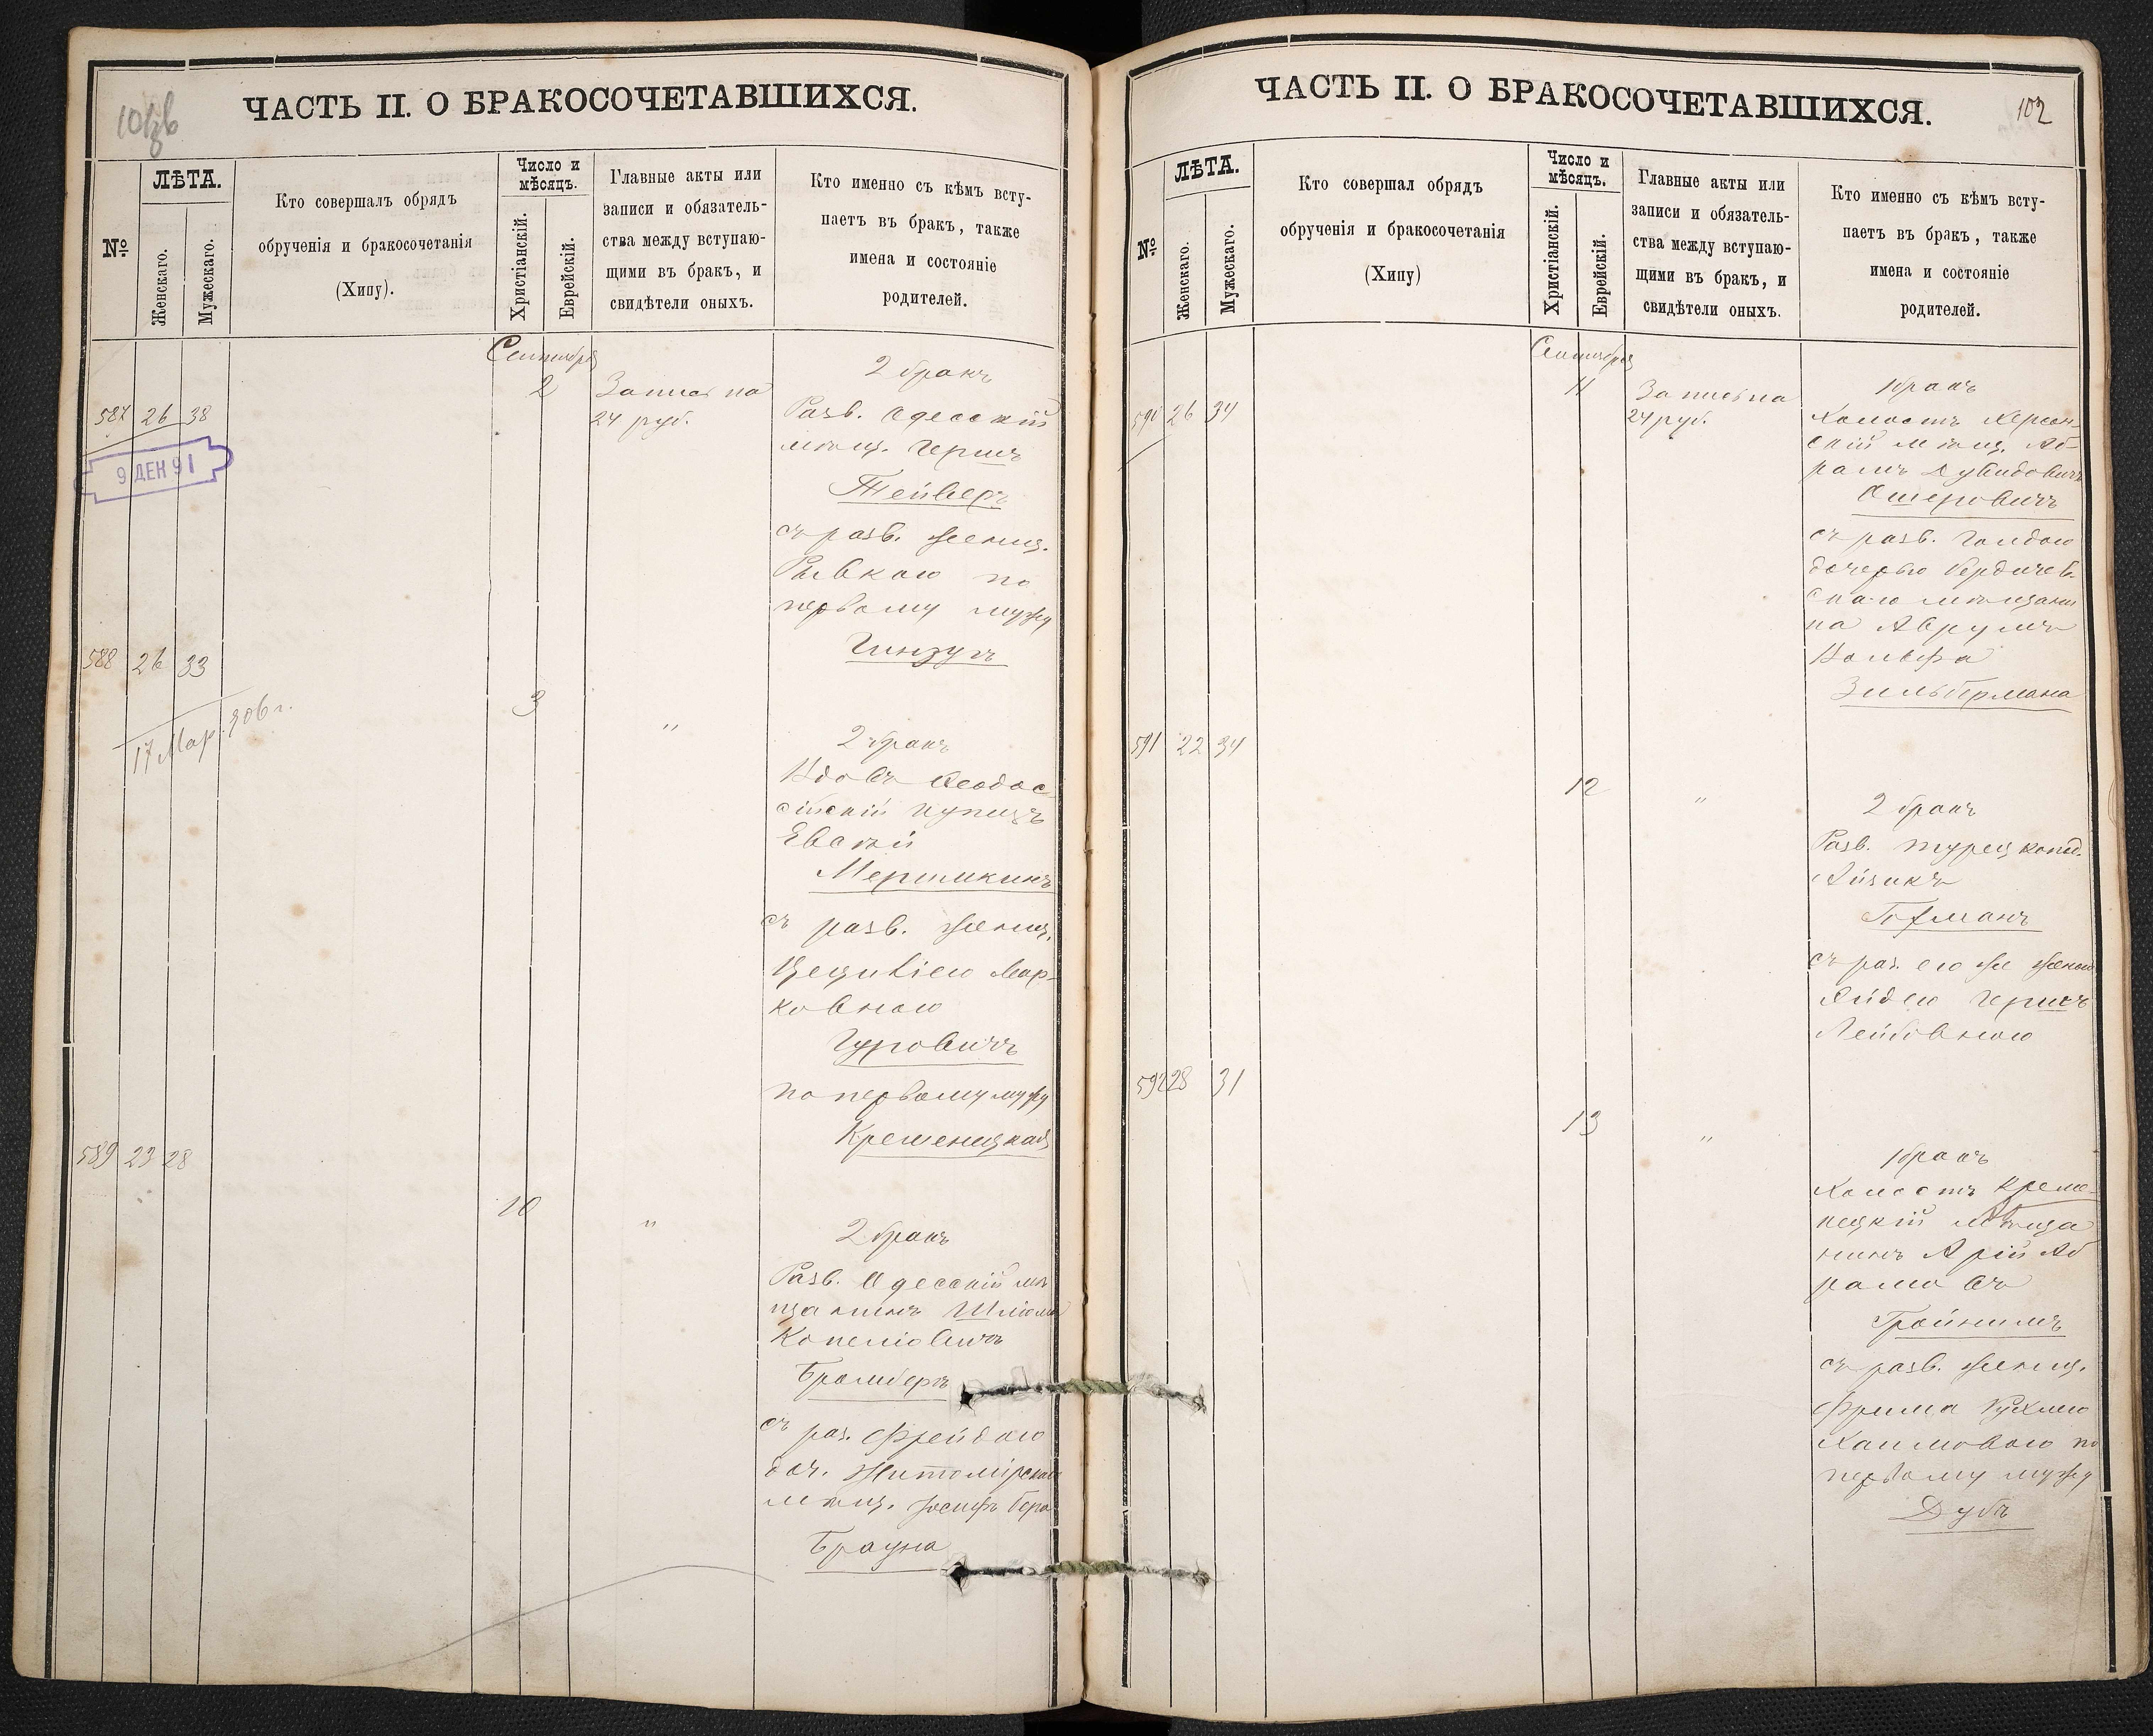 ЧАСТЬ II. О БРАКОСОЧЕТАВШИХСЯ.
№
ЛѢТА.
Женскаго.
Мужескаго.
Кто совершалъ обрядъ
обрученія и бракосочетанія
(Хипу).
Число и
мѣсяцъ.
Христіанскій.
Еврейскій.
Главные акты или
записи и обязатель-
ства между вступаю-
щими въ бракъ, и
свидѣтели оныхъ.
Кто именно съ кѣмъ всту-
паетъ въ бракъ, также
имена и состояніе
родителей.
Сентября
587 26 38
2
Запись на
24 руб.
2 бракъ
Разв. Одесскій
мѣщ. Гершъ
Тейверъ
съ разв. женщ.
Рывкою по
первому мужу
9 ДЕН 91
588 26 33
17 Мар. 906 г.
3
"
2 бракъ
Вдовъ Ѳеодос
сійскій купецъ
Евсѣй
съ разв. женщ.
Цециліею Мар-
ковною
Гуровичъ
по первому мужу
Кременецкая
589 23 28
10
"
2 бракъ
Разв. Одесскій мѣ
щанинъ Шлiома
Копеліовичъ
Бромбергъ
съ раз. Фрейдою
доч. Житомірскаго
мѣщ. Іосифъ Бера
Брауна
ЧАСТЬ II. О БРАКОСОЧЕТАВШИХСЯ.
102
№
ЛѢТА.
Женскаго.
Мужескаго.
Кто совершал обрядъ
обрученія и бракосочетанія
(Хипу)
Число и
мѣсяцъ.
Христіанскій.
Еврейскій.
Главные акты или
записи и обязатель-
ства между вступаю-
щими въ бракъ, и
свидѣтели оныхъ.
Кто именно съ кѣмъ всту-
паетъ въ бракъ, также
имена и состояніе
родителей.
Сентября
590 26 34
11
Запись на
24 руб.
1 бракъ
Холостъ Херсон-
скій мѣщ. Аб-
рамъ Дувидовичъ
Ошеровичъ
съ разв. Голдою
дочерью Бердичев-
скаго мѣщани
на Аврумъ
Вольфа
Зильбермана
591 22 34
12
"
2 бракъ
Разв. турецкопод.
Айзикъ
съ раз. его же женою
Хайдею Гершъ
Лейбовною
592 28 31
13
"
1 бракъ
Холостъ Креме-
нецкій мѣща
нинъ Арій Аб
рамовъ
Тройнимъ
съ разв. женщ.
Фрима Рухлею
Хаимовою по
первому мужу
Дубъ